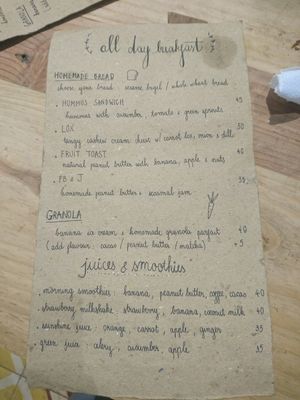 all day breakfast
HOMEMADE BREAD
choose your bread sesame bagel / whole wheat bread
. HUMMOS SANDWICH 45
hummus with cucumber, tomato & green sprouts
. LOX 50
tangy cashew cream cheese w/ carrot lox, onion & dill
. FRUIT TOAST 40
natural peanut butter with banana, apple & nuts
. PB & J 35
homemade peanut butter & seasonal jam
GRANOLA
banana ice cream & homemade granola parfait 40
(add flavour: cacao / peanut butter / matcha) + 5
juices & smoothies
. morning smoothies: banana, peanut butter, coffee, cacao 40
. strawberry milkshake: strawberry, banana, coconut milk 40
. sunshine juice: orange, carrot, apple, ginger 35
. green juice: celery, cucumber, apple 35